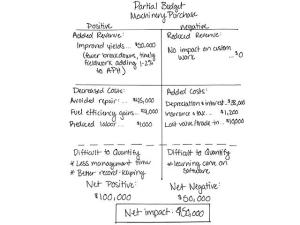 Partial Budget
Machinery Purchase
Positive
negative
Added Revenue:
Improved yields...
(fewer breakdowns, timely
fieldwork adding 1-2%
to APH)
Reduced Revenue:
No impact on custom
work ... $0
Decreased Costs:
Avoided repair...
Fuel efficiency gains...
Reduced labor...
Added Costs:
Depreciation & interest..
Insurance & tax...
Lost value/trade-in...
Difficult to Quantify
* Less management time
* Better record-keeping
Difficult to Quantify
* learning curve on
software
Net Positive:
$100,000
Net Negative:
$50,000
Net impact: $50,000